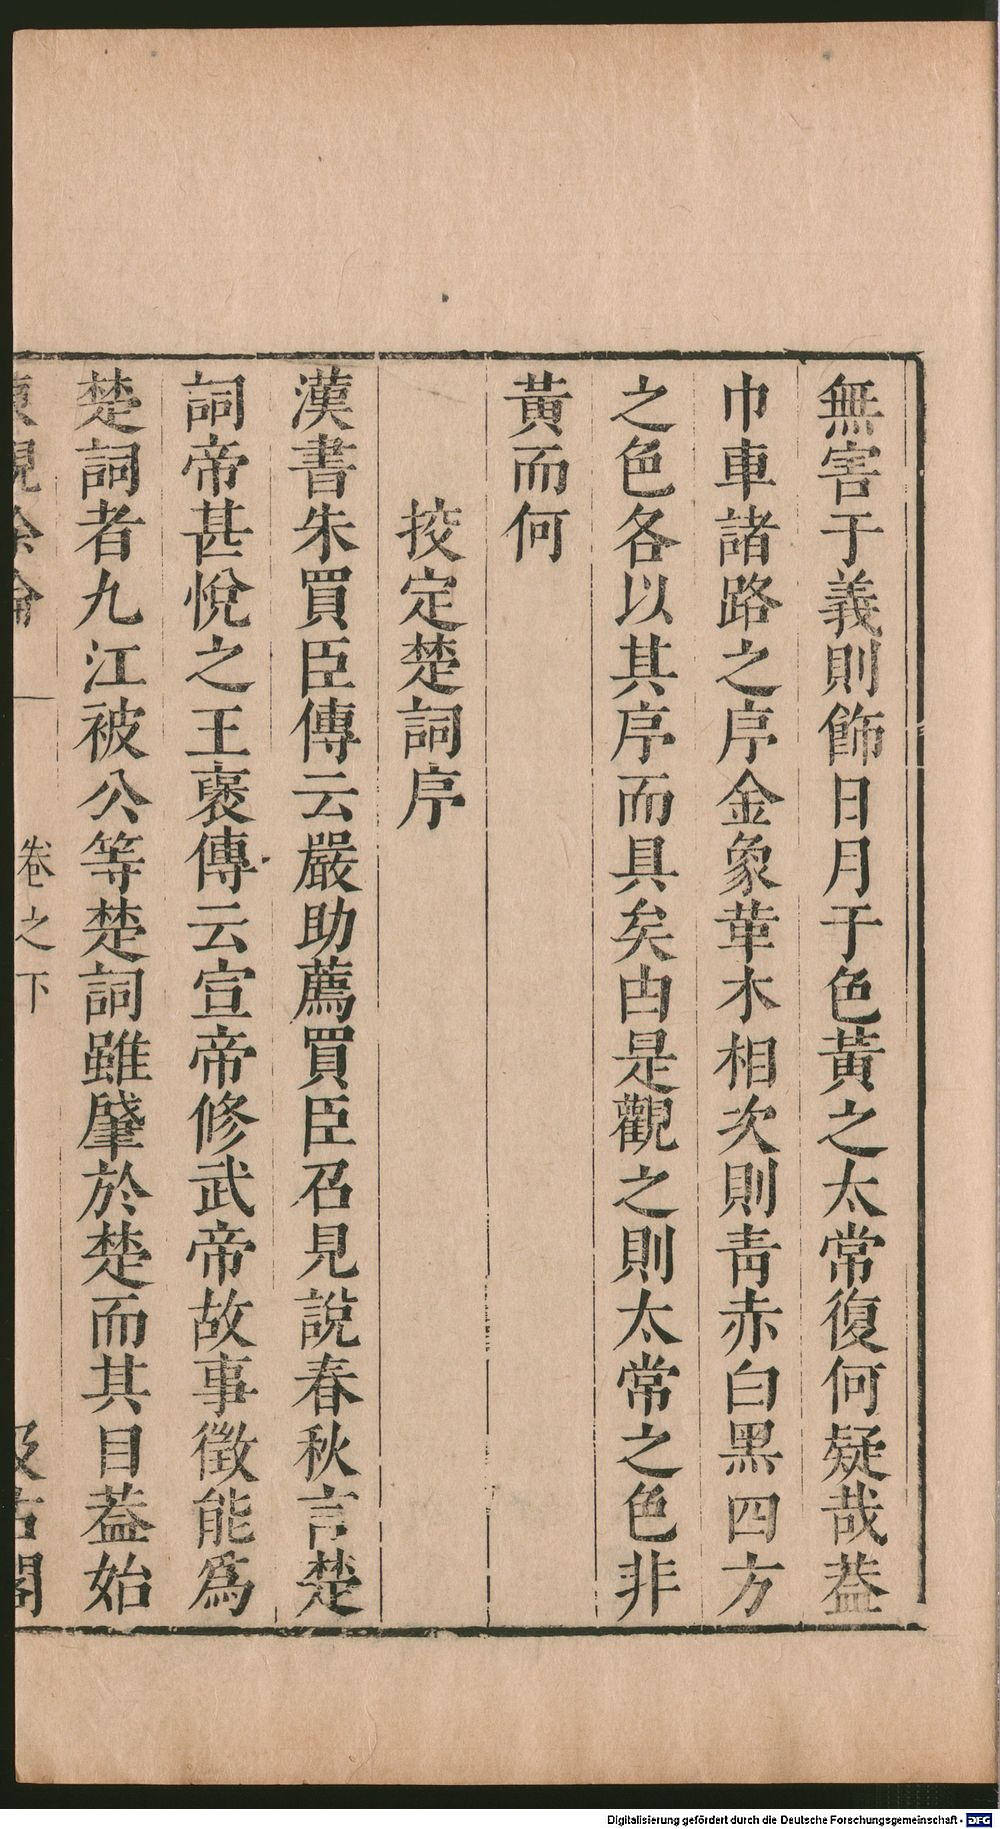 無害于義則飾日月于色黃之太常復何疑哉葢
巾車諸路之序金象革木相次則靑赤白黑四方
之色各以其序而具矣由是觀之則太常之色非
黃而何
挍定楚詞序
漢書朱買臣傳云嚴助薦買臣召見說春秋言楚
詞帝甚悅之王襃傳云宣帝修武帝故事徵能爲
楚詞者九江被公等楚詞雖肇於楚而其目葢始
東觀餘論
卷之下
汲古閣
Digitalisierung gefördert durch die Deutsche Forschungsgemeinschaft - DFG